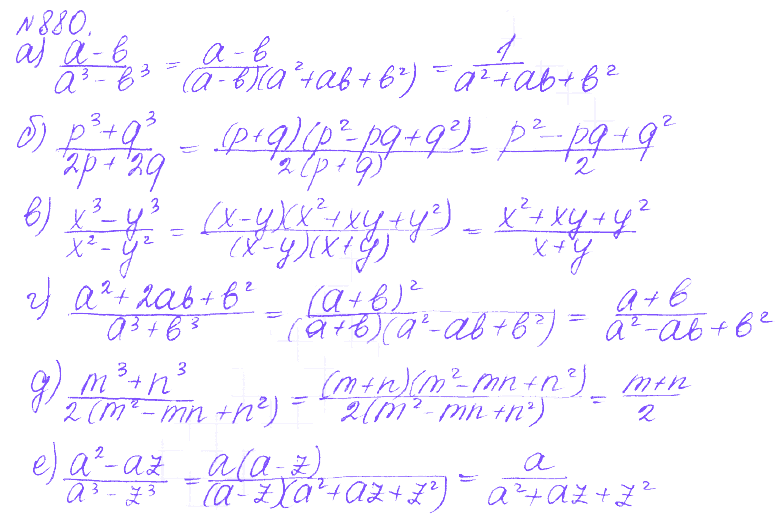 №880.
а) (a-b)/(a³-b³) = (a-b)/((a-b)(a²+ab+b²)) = 1/(a²+ab+b²)
б) (p³+q³)/(2p+2q) = ((p+q)(p²-pq+q²))/(2(p+q)) = (p²-pq+q²)/2
в) (x³-y³)/(x²-y²) = ((x-y)(x²+xy+y²))/((x-y)(x+y)) = (x²+xy+y²)/(x+y)
г) (a²+2ab+b²)/(a³+b³) = (a+b)²/((a+b)(a²-ab+b²)) = (a+b)/(a²-ab+b²)
д) (m³+n³)/(2(m²-mn+n²)) = ((m+n)(m²-mn+n²))/(2(m²-mn+n²)) = (m+n)/2
е) (a²-az)/(a³-z³) = (a(a-z))/((a-z)(a²+az+z²)) = a/(a²+az+z²)